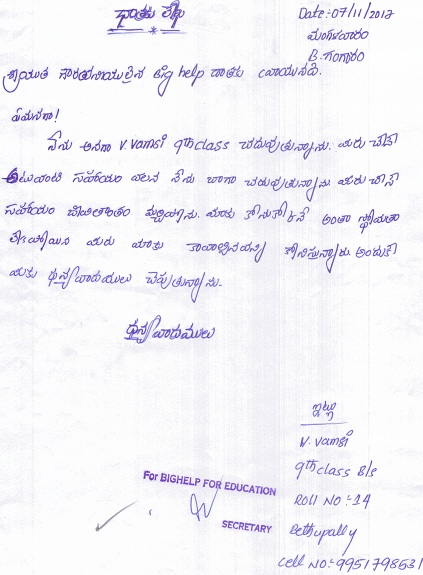 దాతకు లేఖ
Date:-07/11/2012
మంగళవారం
B. గంగారం
శ్రీయుత గౌరవనీయులైన Big help దాతకు వ్రాయునది.
ఏమనగా!
నేను అనగా V. Vamsi 9th class చదువుతున్నాను. మీరు చేసే
అటువంటి సహాయం వలన నేను బాగా చదువుతున్నాను. మీరు చేసే
సహాయం జీవితాంతం మర్చిపోను. మాకు కొనుగోలు చేసే అంతా స్థోమత
లేకపోయిన మీరు మాకు కావాల్సినవన్ని కొనిస్తున్నారు అందుకే
మీకు ధన్యవాదములు చెప్పుతున్నాను.
ధన్యవాదములు
ఇట్లు
V. Vamsi
9th class B/s
Roll NO :- 14
Bethupally
Cell NO:-9951798531
For BIGHELP FOR EDUCATION
SECRETARY